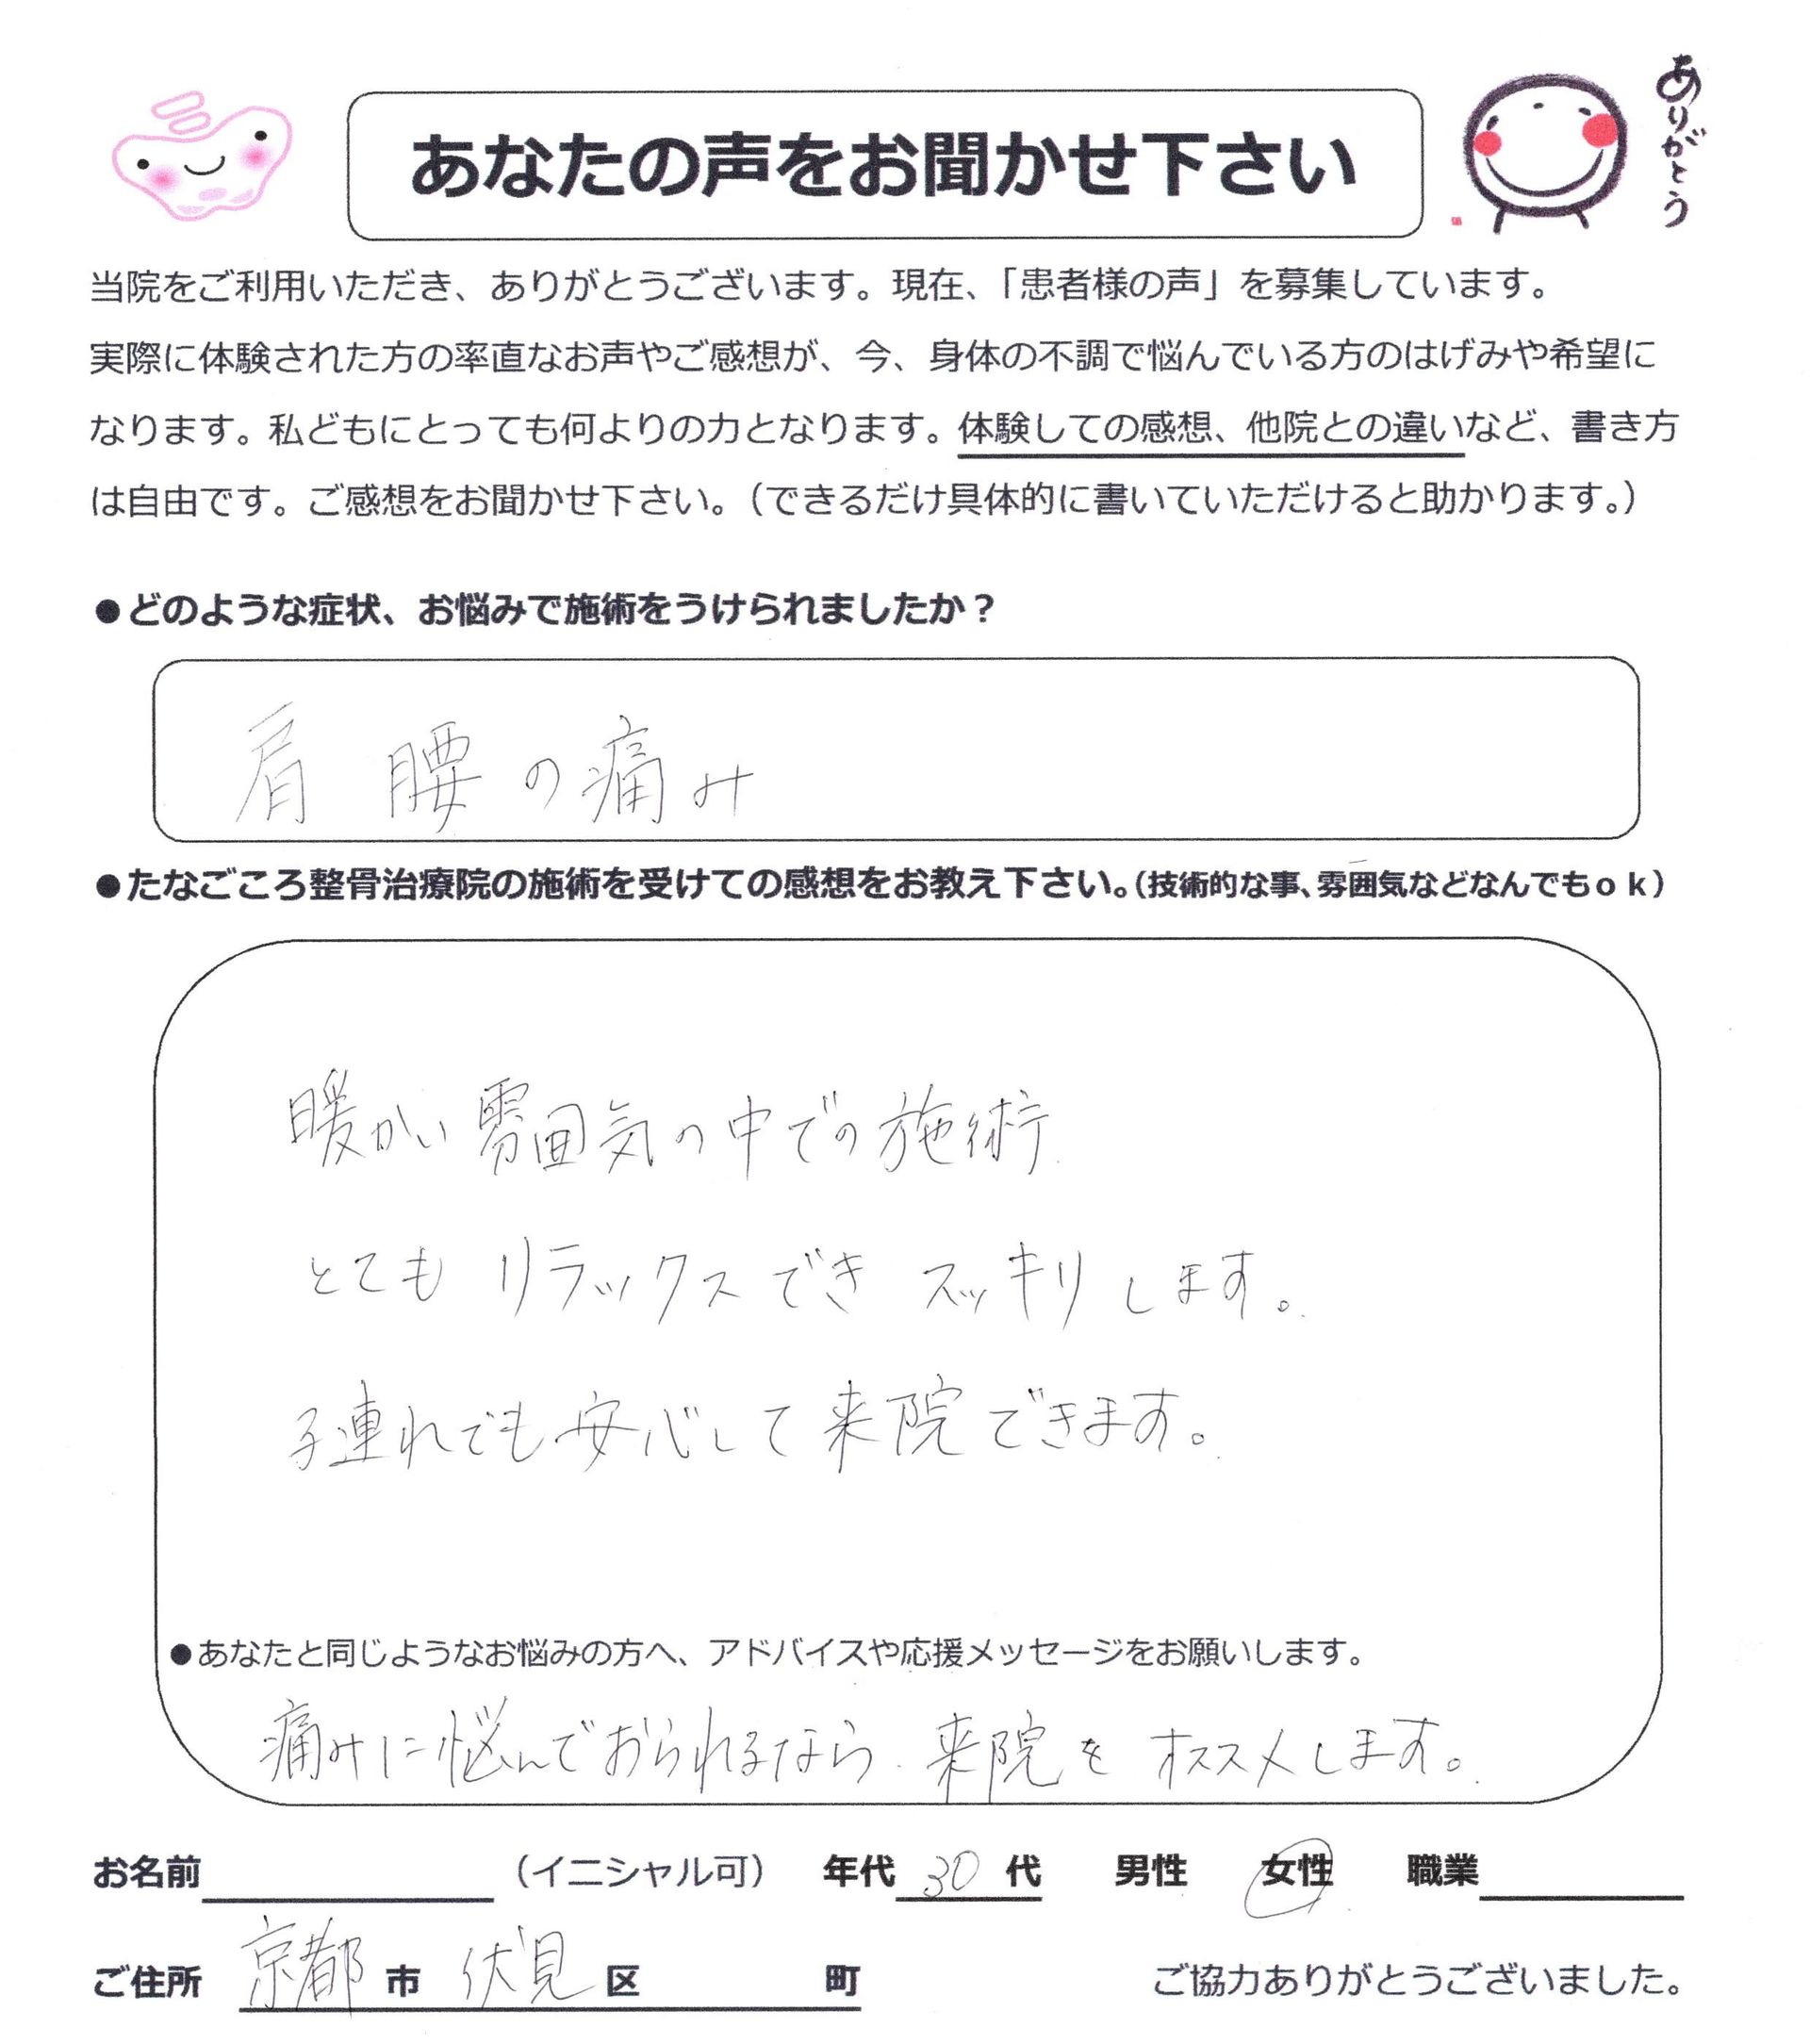 あなたの声をお聞かせ下さい
ありがとう
当院をご利用いただき、ありがとうございます。現在、「患者様の声」を募集しています。
実際に体験された方の率直なお声やご感想が、今、身体の不調で悩んでいる方のはげみや希望に
なります。私どもにとっても何よりの力となります。体験しての感想、他院との違いなど、書き方
は自由です。ご感想をお聞かせ下さい。（できるだけ具体的に書いていただけると助かります。）
●どのような症状、お悩みで施術をうけられましたか？
肩 腰の痛み
●たなごころ整骨治療院の施術を受けての感想をお教え下さい。（技術的な事、雰囲気などなんでもｏｋ）
暖かい雰囲気の中での施術
とても リラックスでき スッキリします。
子連れでも安心して来院できます。
●あなたと同じようなお悩みの方へ、アドバイスや応援メッセージをお願いします。
痛みに悩んでおられるなら 来院を オススメします。
お名前 （イニシャル可） 年代 30 代 男性 女性 職業
ご住所 京都 市 伏見 区 町 ご協力ありがとうございました。